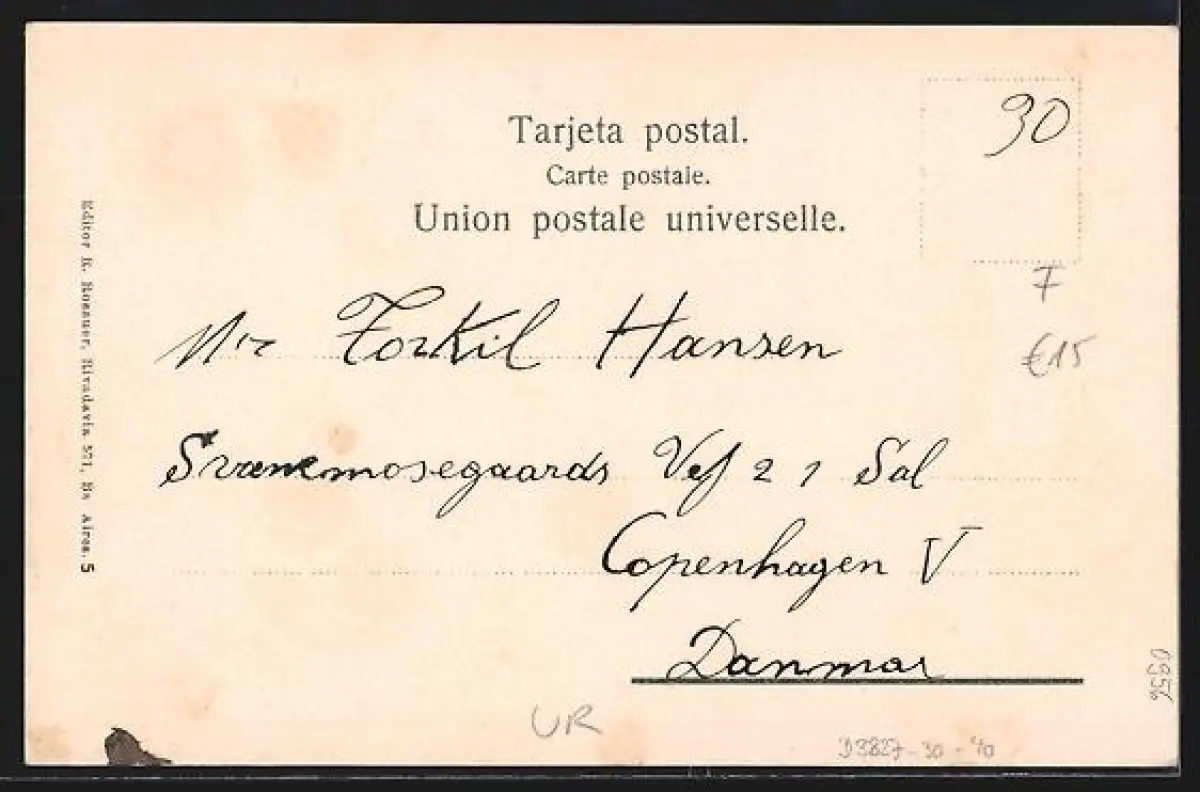 Tarjeta postal.
Carte postale.
Union postale universelle.
30
F
€15
Mr Torkil Hansen
Svanemosegaards Vej 2 1 Sal
Copenhagen V
Danmar
Editor R. Rosauer, Rivadavia 571, Bs Aires. 5
UR
D3827-30-40
0956